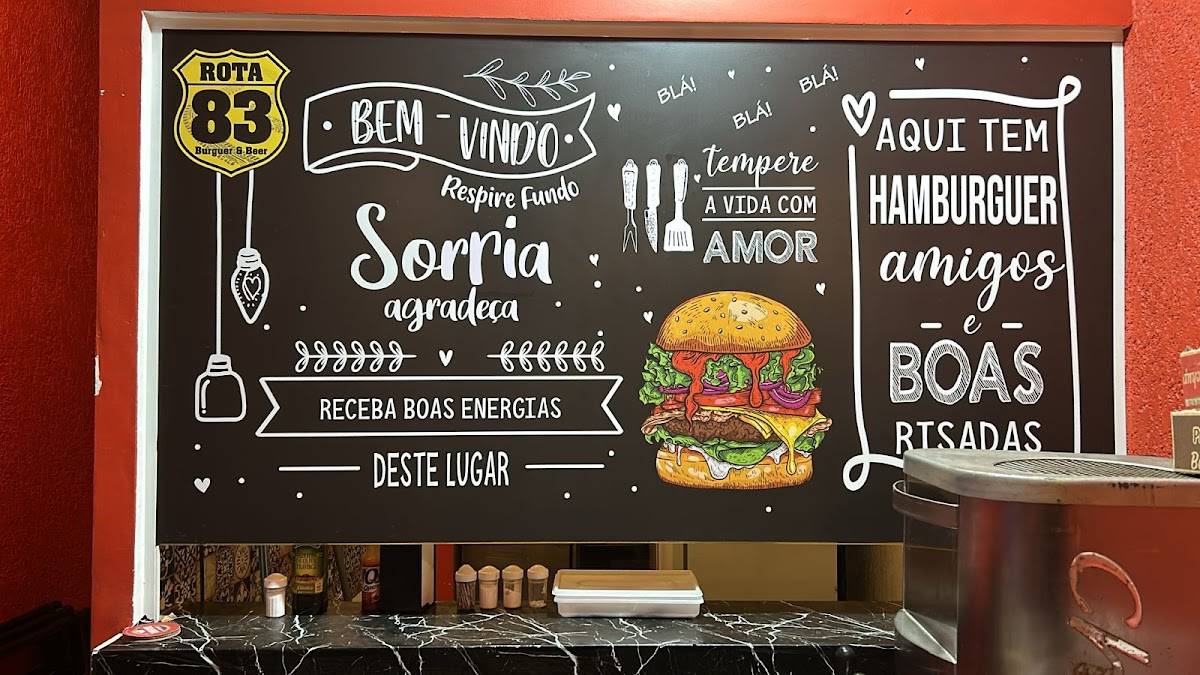 ROTA
83
Burguer & Beer
BEM-VINDO
Respire Fundo
Sorria
agradeça
RECEBA BOAS ENERGIAS
DESTE LUGAR
BLÁ!
BLÁ!
BLÁ!
tempere
A VIDA COM
AMOR
AQUI TEM
HAMBURGUER
amigos
e
BOAS
RISADAS